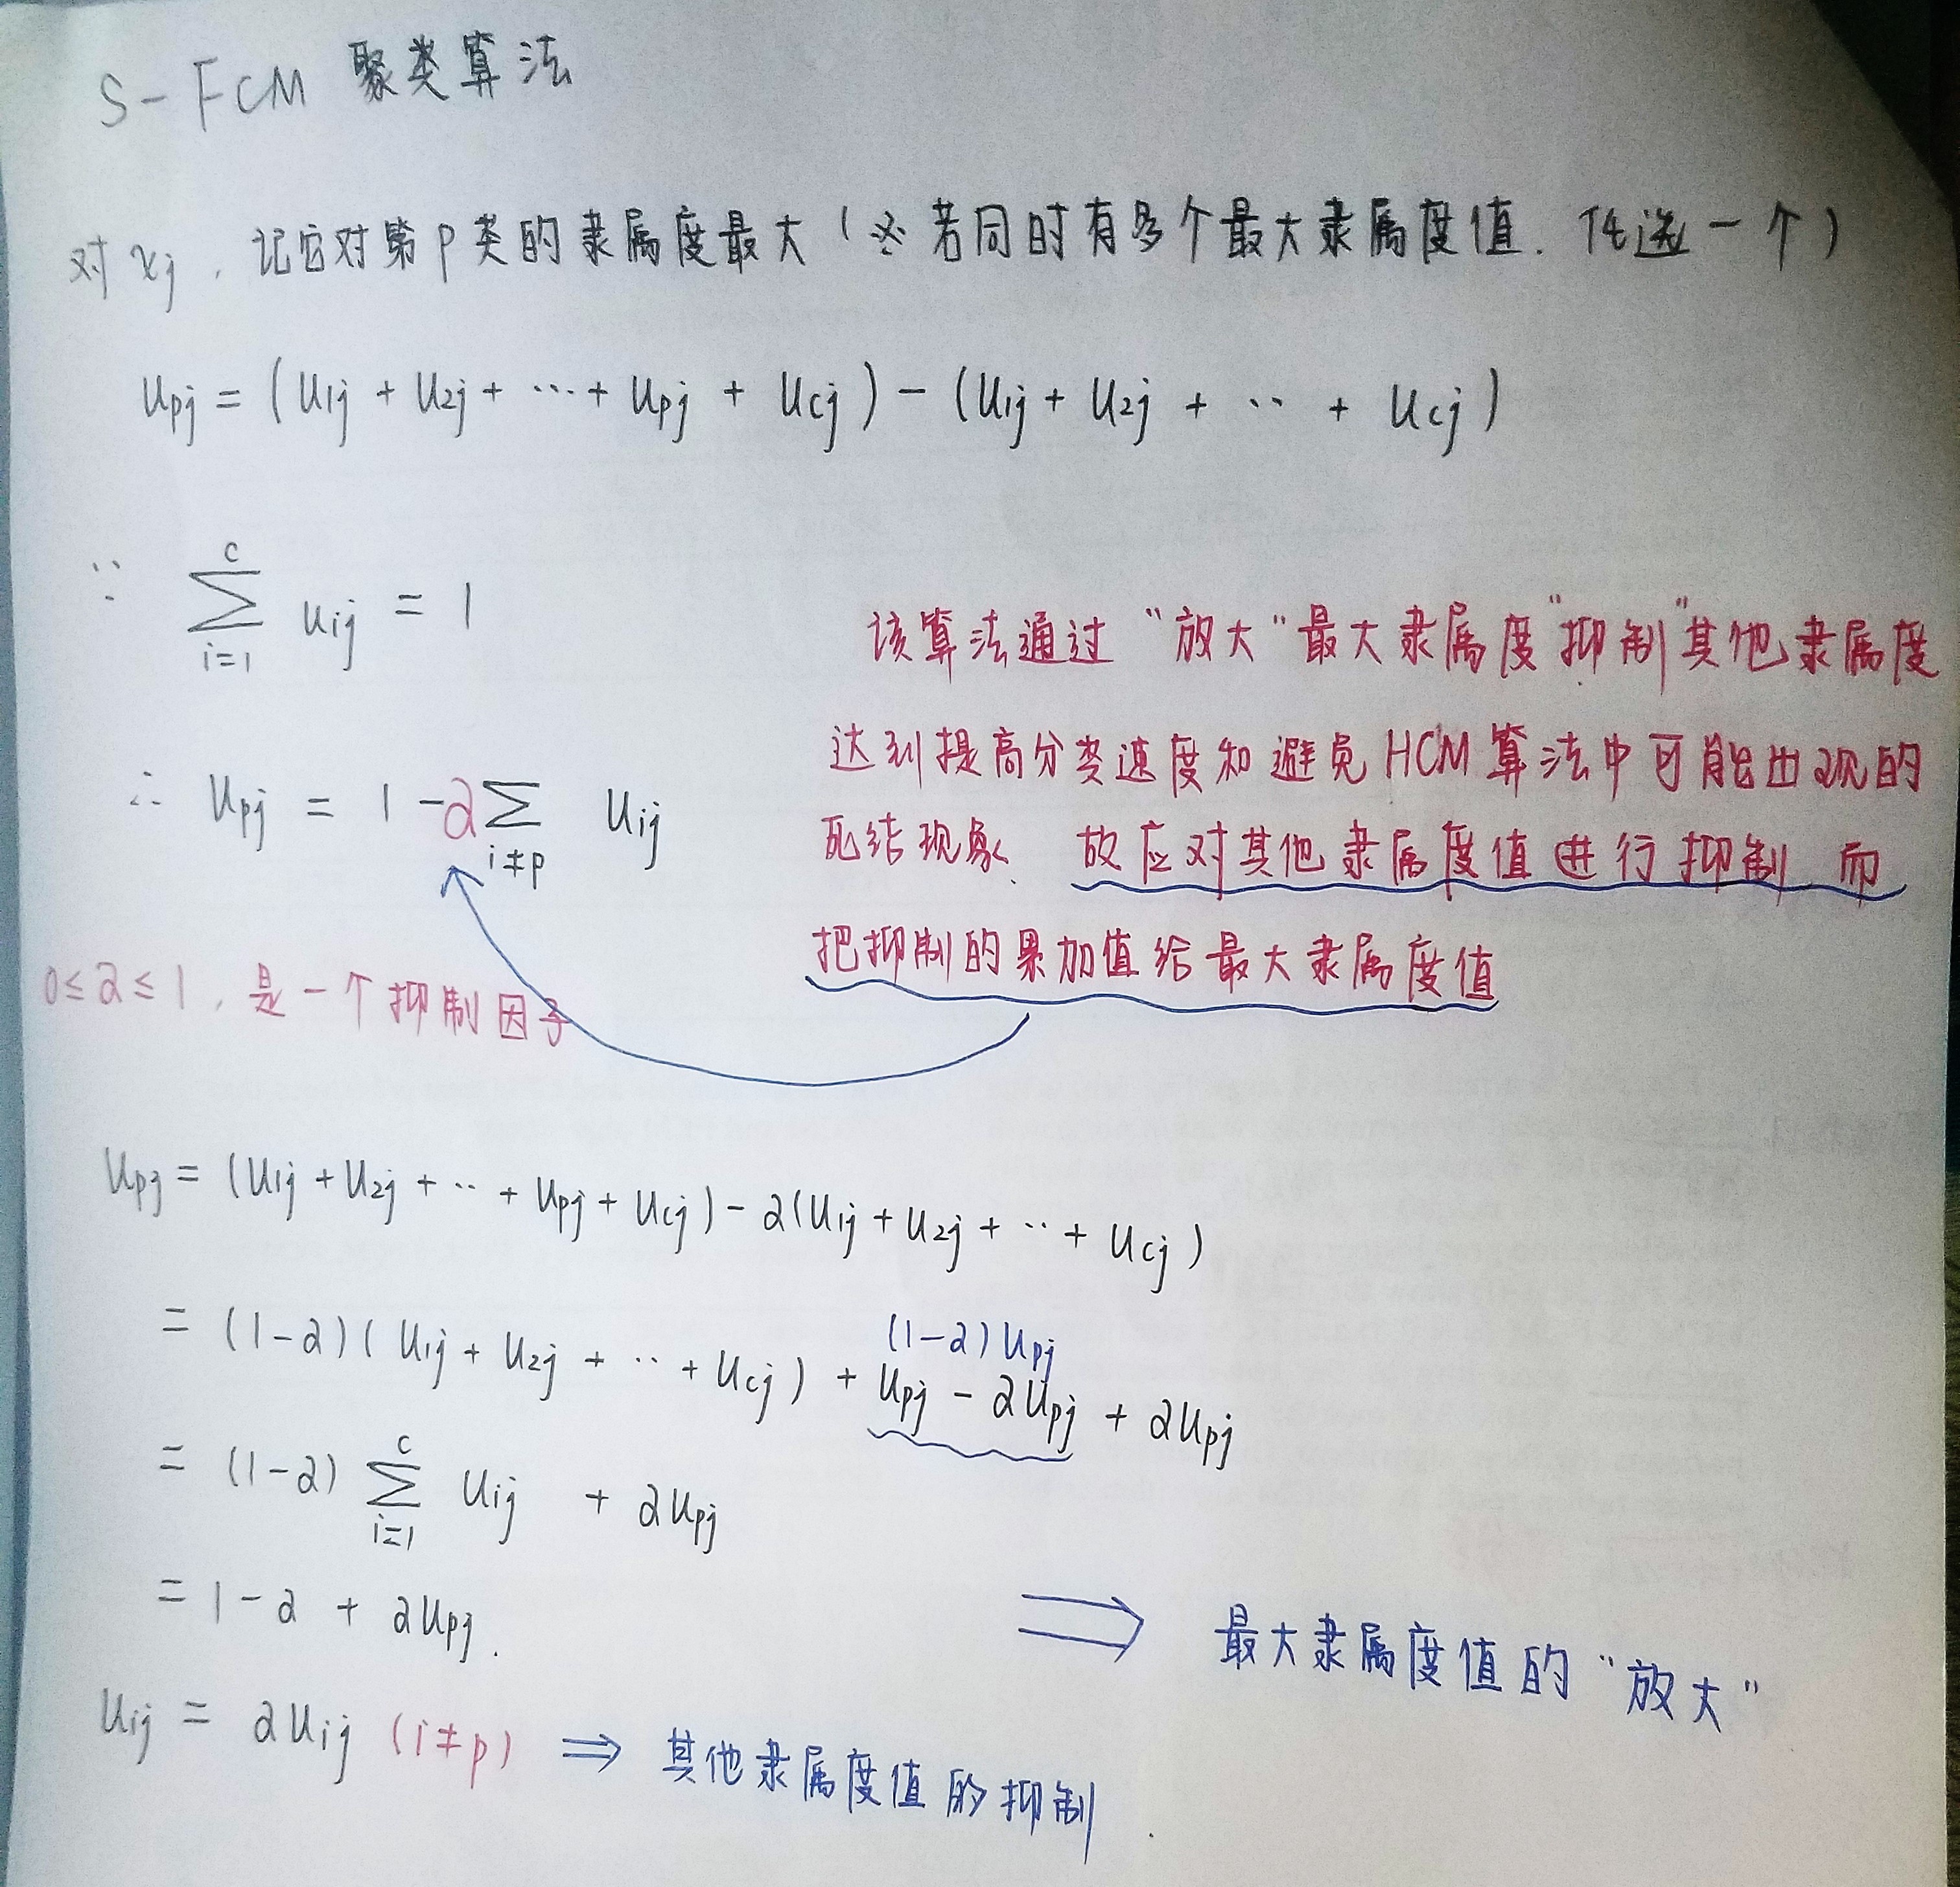 S-FCM 聚类算法
对 xj，记它对第p类的隶属度最大（※若同时有多个最大隶属度值．任选一个）
upj = (u1j + u2j + ··· + upj + ucj) - (u1j + u2j + ·· + ucj)
∵ ∑_{i=1}^{c} uij = 1
∴ upj = 1 - α∑_{i≠p} uij
0≤α≤1，是一个抑制因子
该算法通过“放大”最大隶属度“抑制”其他隶属度
达到提高分类速度和避免HCM算法中可能出现的
死结现象．故应对其他隶属度值进行抑制 而
把抑制的累加值给最大隶属度值
upj = (u1j + u2j + ·· + upj + ucj) - α(u1j + u2j + ·· + ucj)
(1-α)upj
= (1-α)(u1j + u2j + ·· + ucj) + upj - αupj + αupj
= (1-α) ∑_{i=1}^{c} uij + αupj
= 1 - α + αupj. ⇒ 最大隶属度值的“放大”
uij = αuij (i≠p) ⇒ 其他隶属度值的抑制.